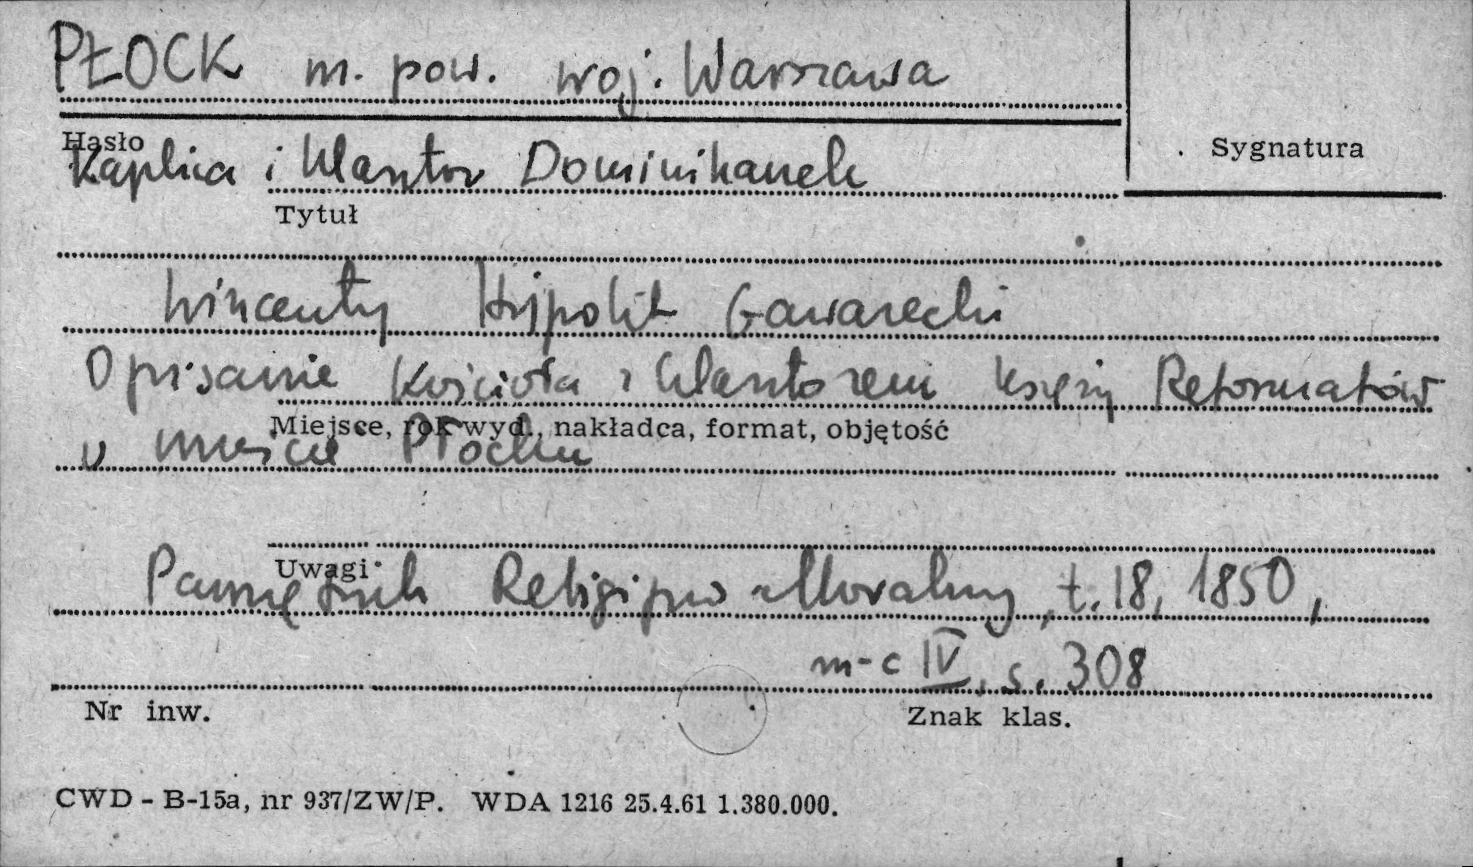 PŁOCK m. pow. woj. Warszawa
Hasło
Sygnatura
Kaplica i klasztor Dominikanek
Tytuł
Wincenty Hipolit Gawarecki
Opisanie Kościoła z klasztorem księży Reformatów
Miejsce, rok wyd., nakładca, format, objętość
w mieście Płocku
Uwagi
Pamiętnik Religijno-Moralny, t. 18, 1850,
m-c IV, s. 308
Nr inw.
Znak klas.
CWD - B-15a, nr 937/ZW/P. WDA 1216 25.4.61 1.380.000.